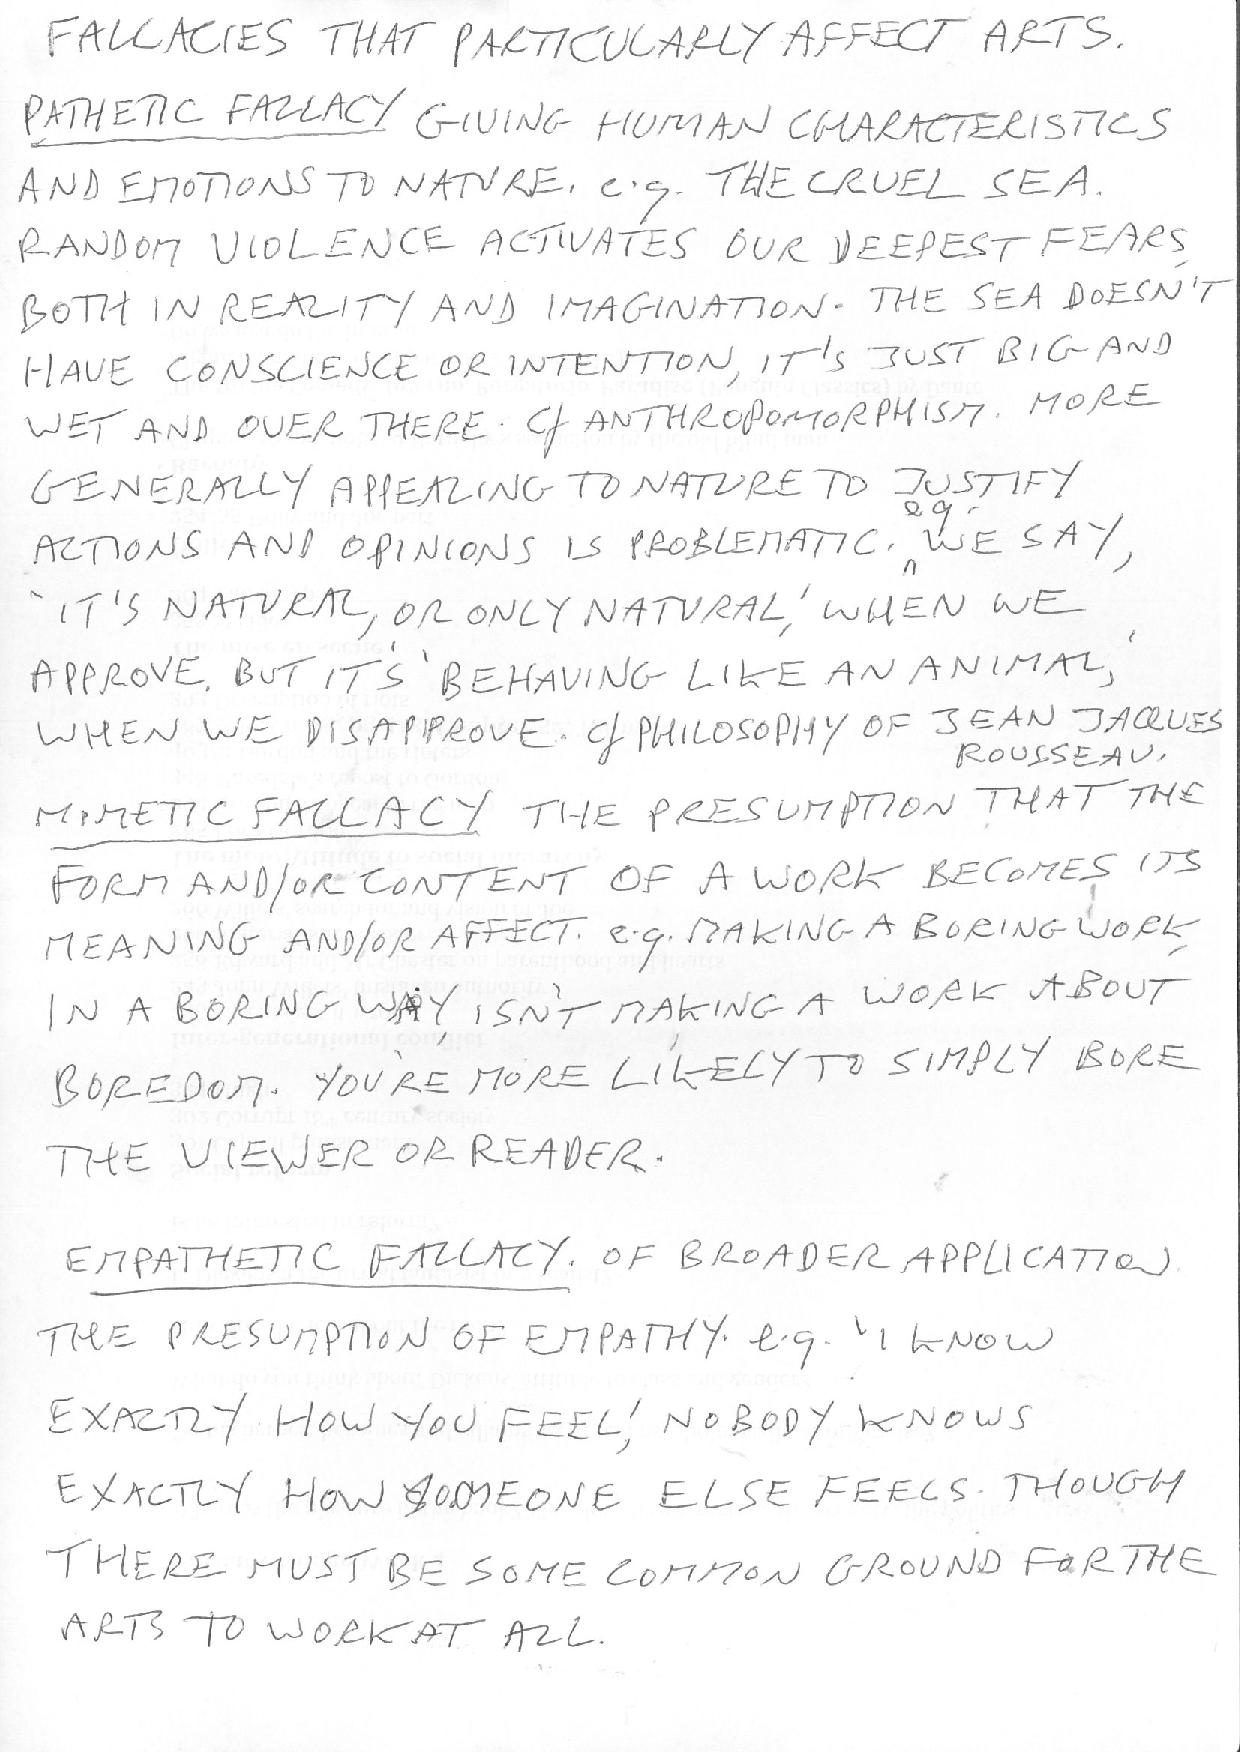 FALLACIES THAT PARTICULARLY AFFECT ARTS.
PATHETIC FALLACY GIVING HUMAN CHARACTERISTICS
AND EMOTIONS TO NATURE. e.g. THE CRUEL SEA.
RANDOM VIOLENCE ACTIVATES OUR DEEPEST FEARS,
BOTH IN REALITY AND IMAGINATION. THE SEA DOESN'T
HAVE CONSCIENCE OR INTENTION, IT'S JUST BIG AND
WET AND OVER THERE. Cf ANTHROPOMORPHISM. MORE
GENERALLY APPEALING TO NATURE TO JUSTIFY
ACTIONS AND OPINIONS IS PROBLEMATIC. e.g. WE SAY,
'IT'S NATURAL, OR ONLY NATURAL,' WHEN WE
APPROVE. BUT IT'S 'BEHAVING LIKE AN ANIMAL,'
WHEN WE DISAPPROVE. Cf PHILOSOPHY OF JEAN JACQUES
ROUSSEAU.
MIMETIC FALLACY THE PRESUMPTION THAT THE
FORM AND/OR CONTENT OF A WORK BECOMES ITS
MEANING AND/OR AFFECT. e.g. MAKING A BORING WORK,
IN A BORING WAY, ISN'T MAKING A WORK ABOUT
BOREDOM. YOU'RE MORE LIKELY TO SIMPLY BORE
THE VIEWER OR READER.
EMPATHETIC FALLACY. OF BROADER APPLICATION.
THE PRESUMPTION OF EMPATHY. e.g. 'I KNOW
EXACTLY HOW YOU FEEL', NOBODY KNOWS
EXACTLY HOW SOMEONE ELSE FEELS. THOUGH
THERE MUST BE SOME COMMON GROUND FOR THE
ARTS TO WORK AT ALL.